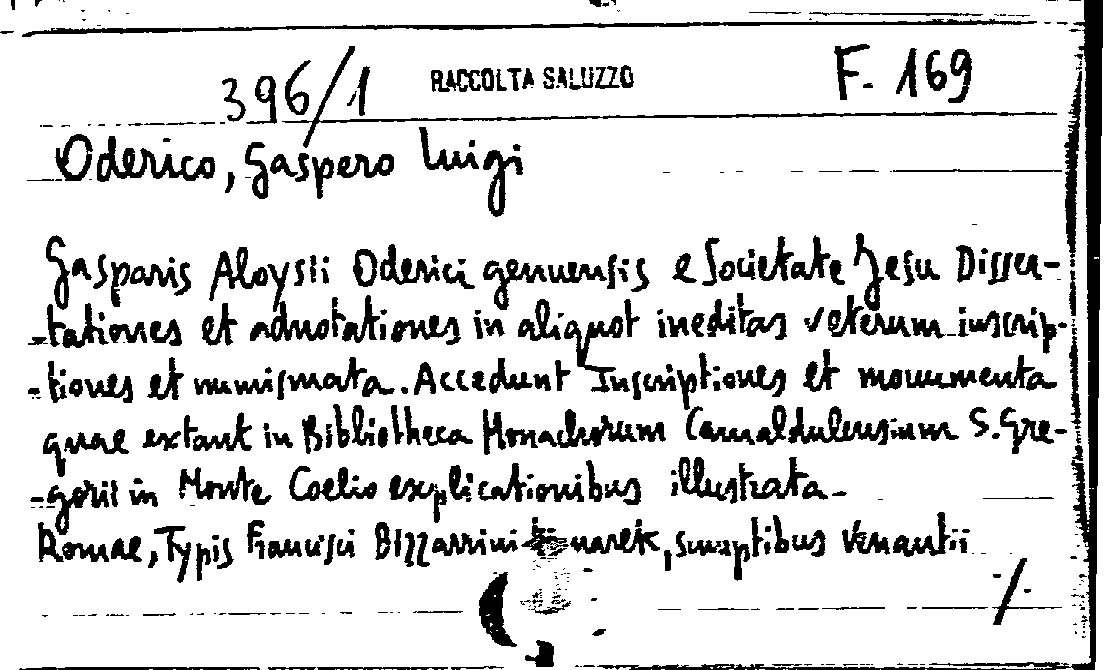 396/1 RACCOLTA SALUZZO F. 169
Oderico, Gaspero Luigi
Gasparis Aloysii Oderici genuensis e Societate Jesu Disser-
-tationes et adnotationes in aliquot ineditas veterum inscrip-
-tiones et numismata. Accedunt Inscriptiones et monumenta
quae extant in Bibliotheca Monachorum Camaldulensium S. Gre-
-gorii in Monte Coelio explicationibus illustrata-
Romae, Typis Francisci Bizzarrini sumptibus Venantii
./.